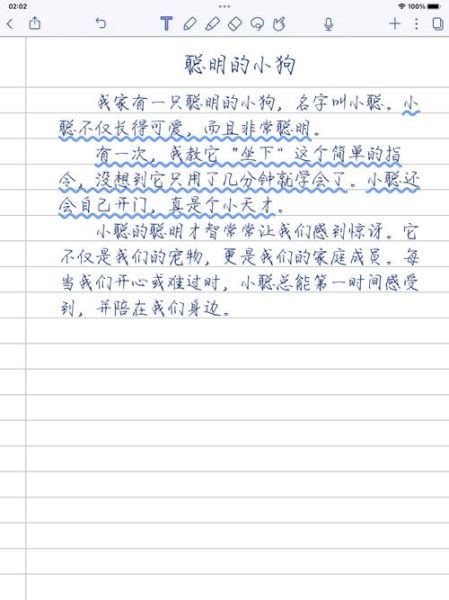 02:02
100%
聪明的小狗
我家有一只聪明的小狗，名字叫小聪。小
聪不仅长得可爱，而且非常聪明。
有一次，我教它“坐下”这个简单的指
令，没想到它只用了几分钟就学会了。小聪还
会自己开门，真是个小天才。
小聪的聪明才智常常让我们感到惊讶。它
不仅是我们的宠物，更是我们的家庭成员。每
当我们开心或难过时，小聪总能第一时间感受
到，并陪在我们身边。